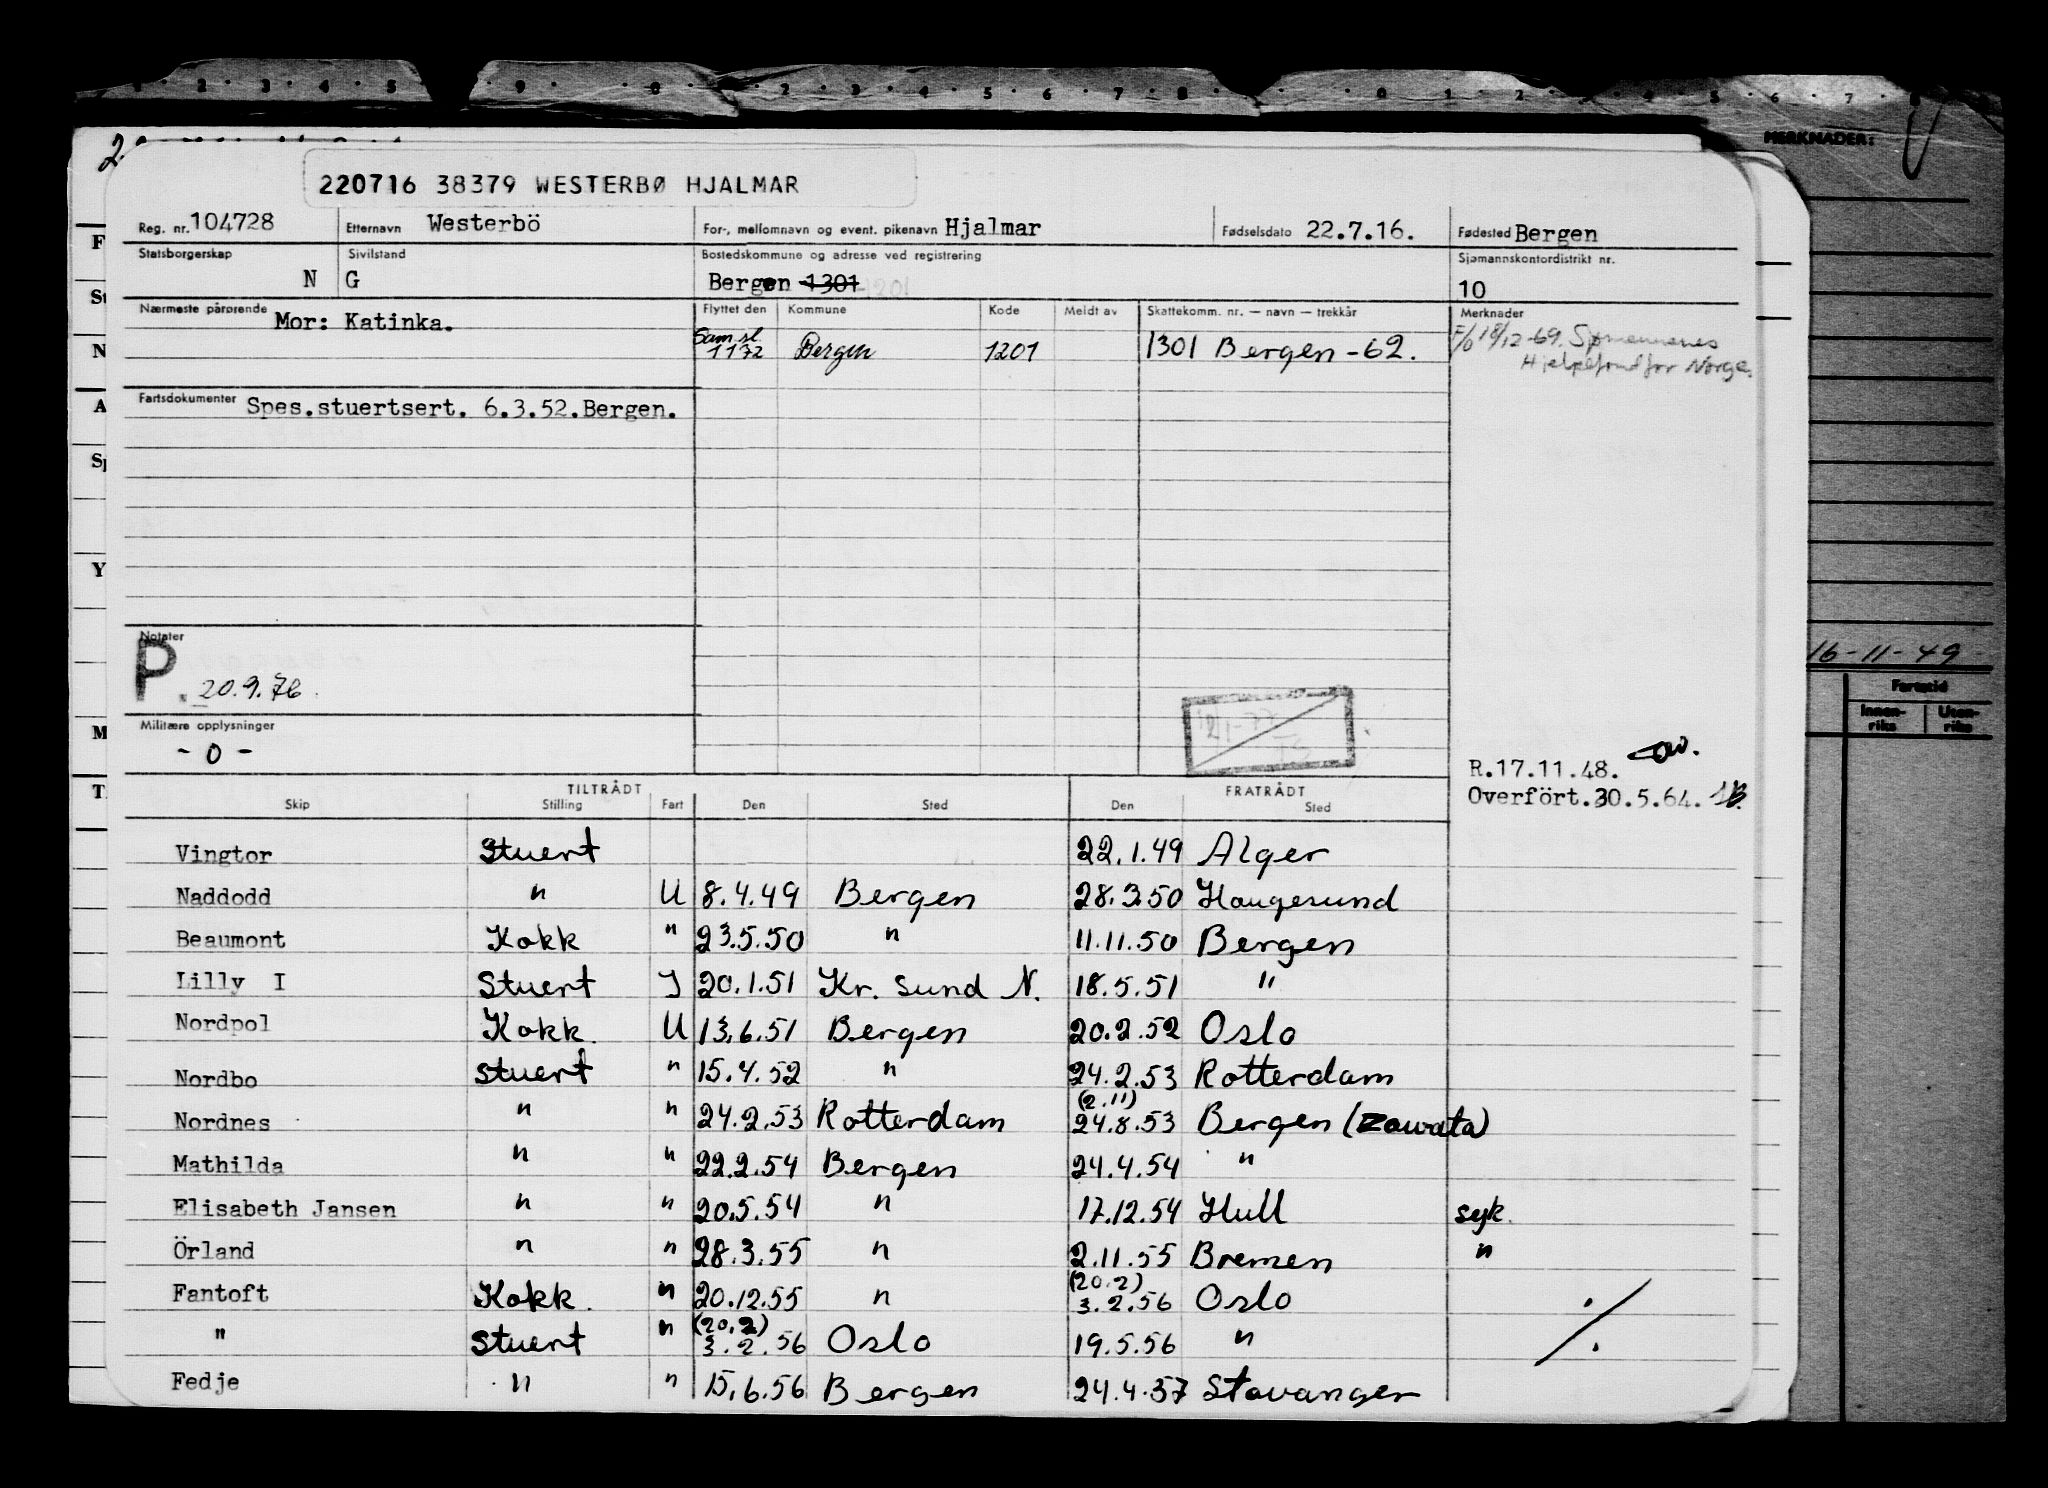 MERKNADER:
220716 38379 WESTERBØ HJALMAR
Reg. nr. 104728 Etternavn Westerbö For-, mellomnavn og event. pikenavn Hjalmar Fødselsdato 22.7.16. Fødested Bergen
Statsborgerskap N Sivilstand G Bostedskommune og adresse ved registrering Bergen 1301 1201 Sjømannskontordistrikt nr. 10
Nærmeste pårørende Mor: Katinka. Flyttet den Kommune Kode Meldt av Skattekomm. nr. — navn — trekkår Merknader
Sam.sl. 1172 Bergen 1201 1301 Bergen -62. F/o 18/12-69. Sømennenes
Hjelpefond for Norge.
Fartsdokumenter Spes.stuertsert. 6.3.52.Bergen.
Notater
P. 20.9.76.
16-11-49
Fartstid
Innen-riks Uten-riks
Militære opplysninger
- 0 -
R.17.11.48.
Overfört.30.5.64.
TILTRÅDT FRATRÅDT
Skip Stilling Fart Den Sted Den Sted
Vingtor Stuert 22.1.49 Alger
Naddodd " U 8.4.49 Bergen 28.3.50 Haugesund
Beaumont Kokk " 23.5.50 " 11.11.50 Bergen
Lilly I Stuert I 20.1.51 Kr. sund N. 18.5.51 "
Nordpol Kokk. U 13.6.51 Bergen 20.2.52 Oslo
Nordbo Stuert " 15.4.52 " 24.2.53 Rotterdam
Nordnes " " 24.2.53 Rotterdam (2.11) 24.8.53 Bergen (Zawata)
Mathilda " " 22.2.54 Bergen 24.4.54 "
Elisabeth Jansen " " 20.5.54 " 17.12.54 Hull syk.
Örland " " 28.3.55 " 2.11.55 Bremen "
Fantoft Kokk. " 20.12.55 " (20.2) 3.2.56 Oslo ./.
" Stuert " (20.2) 3.2.56 Oslo 19.5.56 "
Fedje " " 15.6.56 Bergen 24.4.57 Stavanger